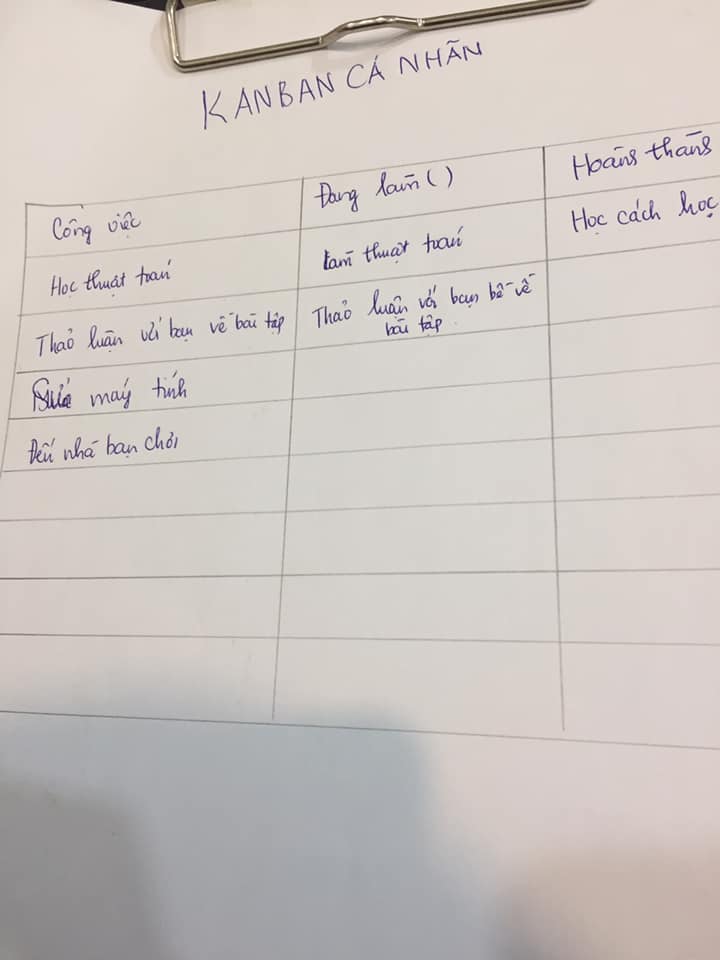 KANBAN CÁ NHÃN
Công việc
Đang làm ( )
Hoàng thàng
Học thuật toán
Làm thuật toán
Học cách học
Thảo luận với bạn về bài tập
Thảo luận với bạn bè về
bài tập
máy tính
Đến nhà bạn chơi